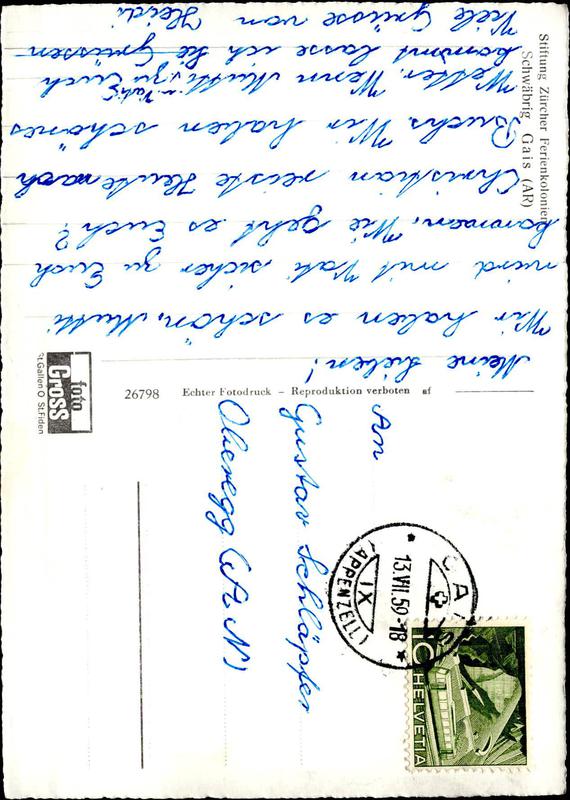 Stiftung Zürcher Ferienkolonien
Schwäbrig Gais (AR)
Meine Lieben!
Wir haben es schön, Mutti
wird mit Vati sicher zu Euch
kommen. Wie geht es Euch?
Christian reiste Heute nach
Buchs. Wir haben schönes
Wetter. Wenn Mutti u. Vati zu Euch
kommt lasse ich sie Grüssen
Viele Grüsse von
Heidi
foto
Gross
St.Gallen O St.Fiden
26798 Echter Fotodruck – Reproduktion verboten
An
Gustav Schläpfer
Oberegg (A. N)
GAIS
13.VII.59-18
IX
(APPENZELL)
10
HELVETIA